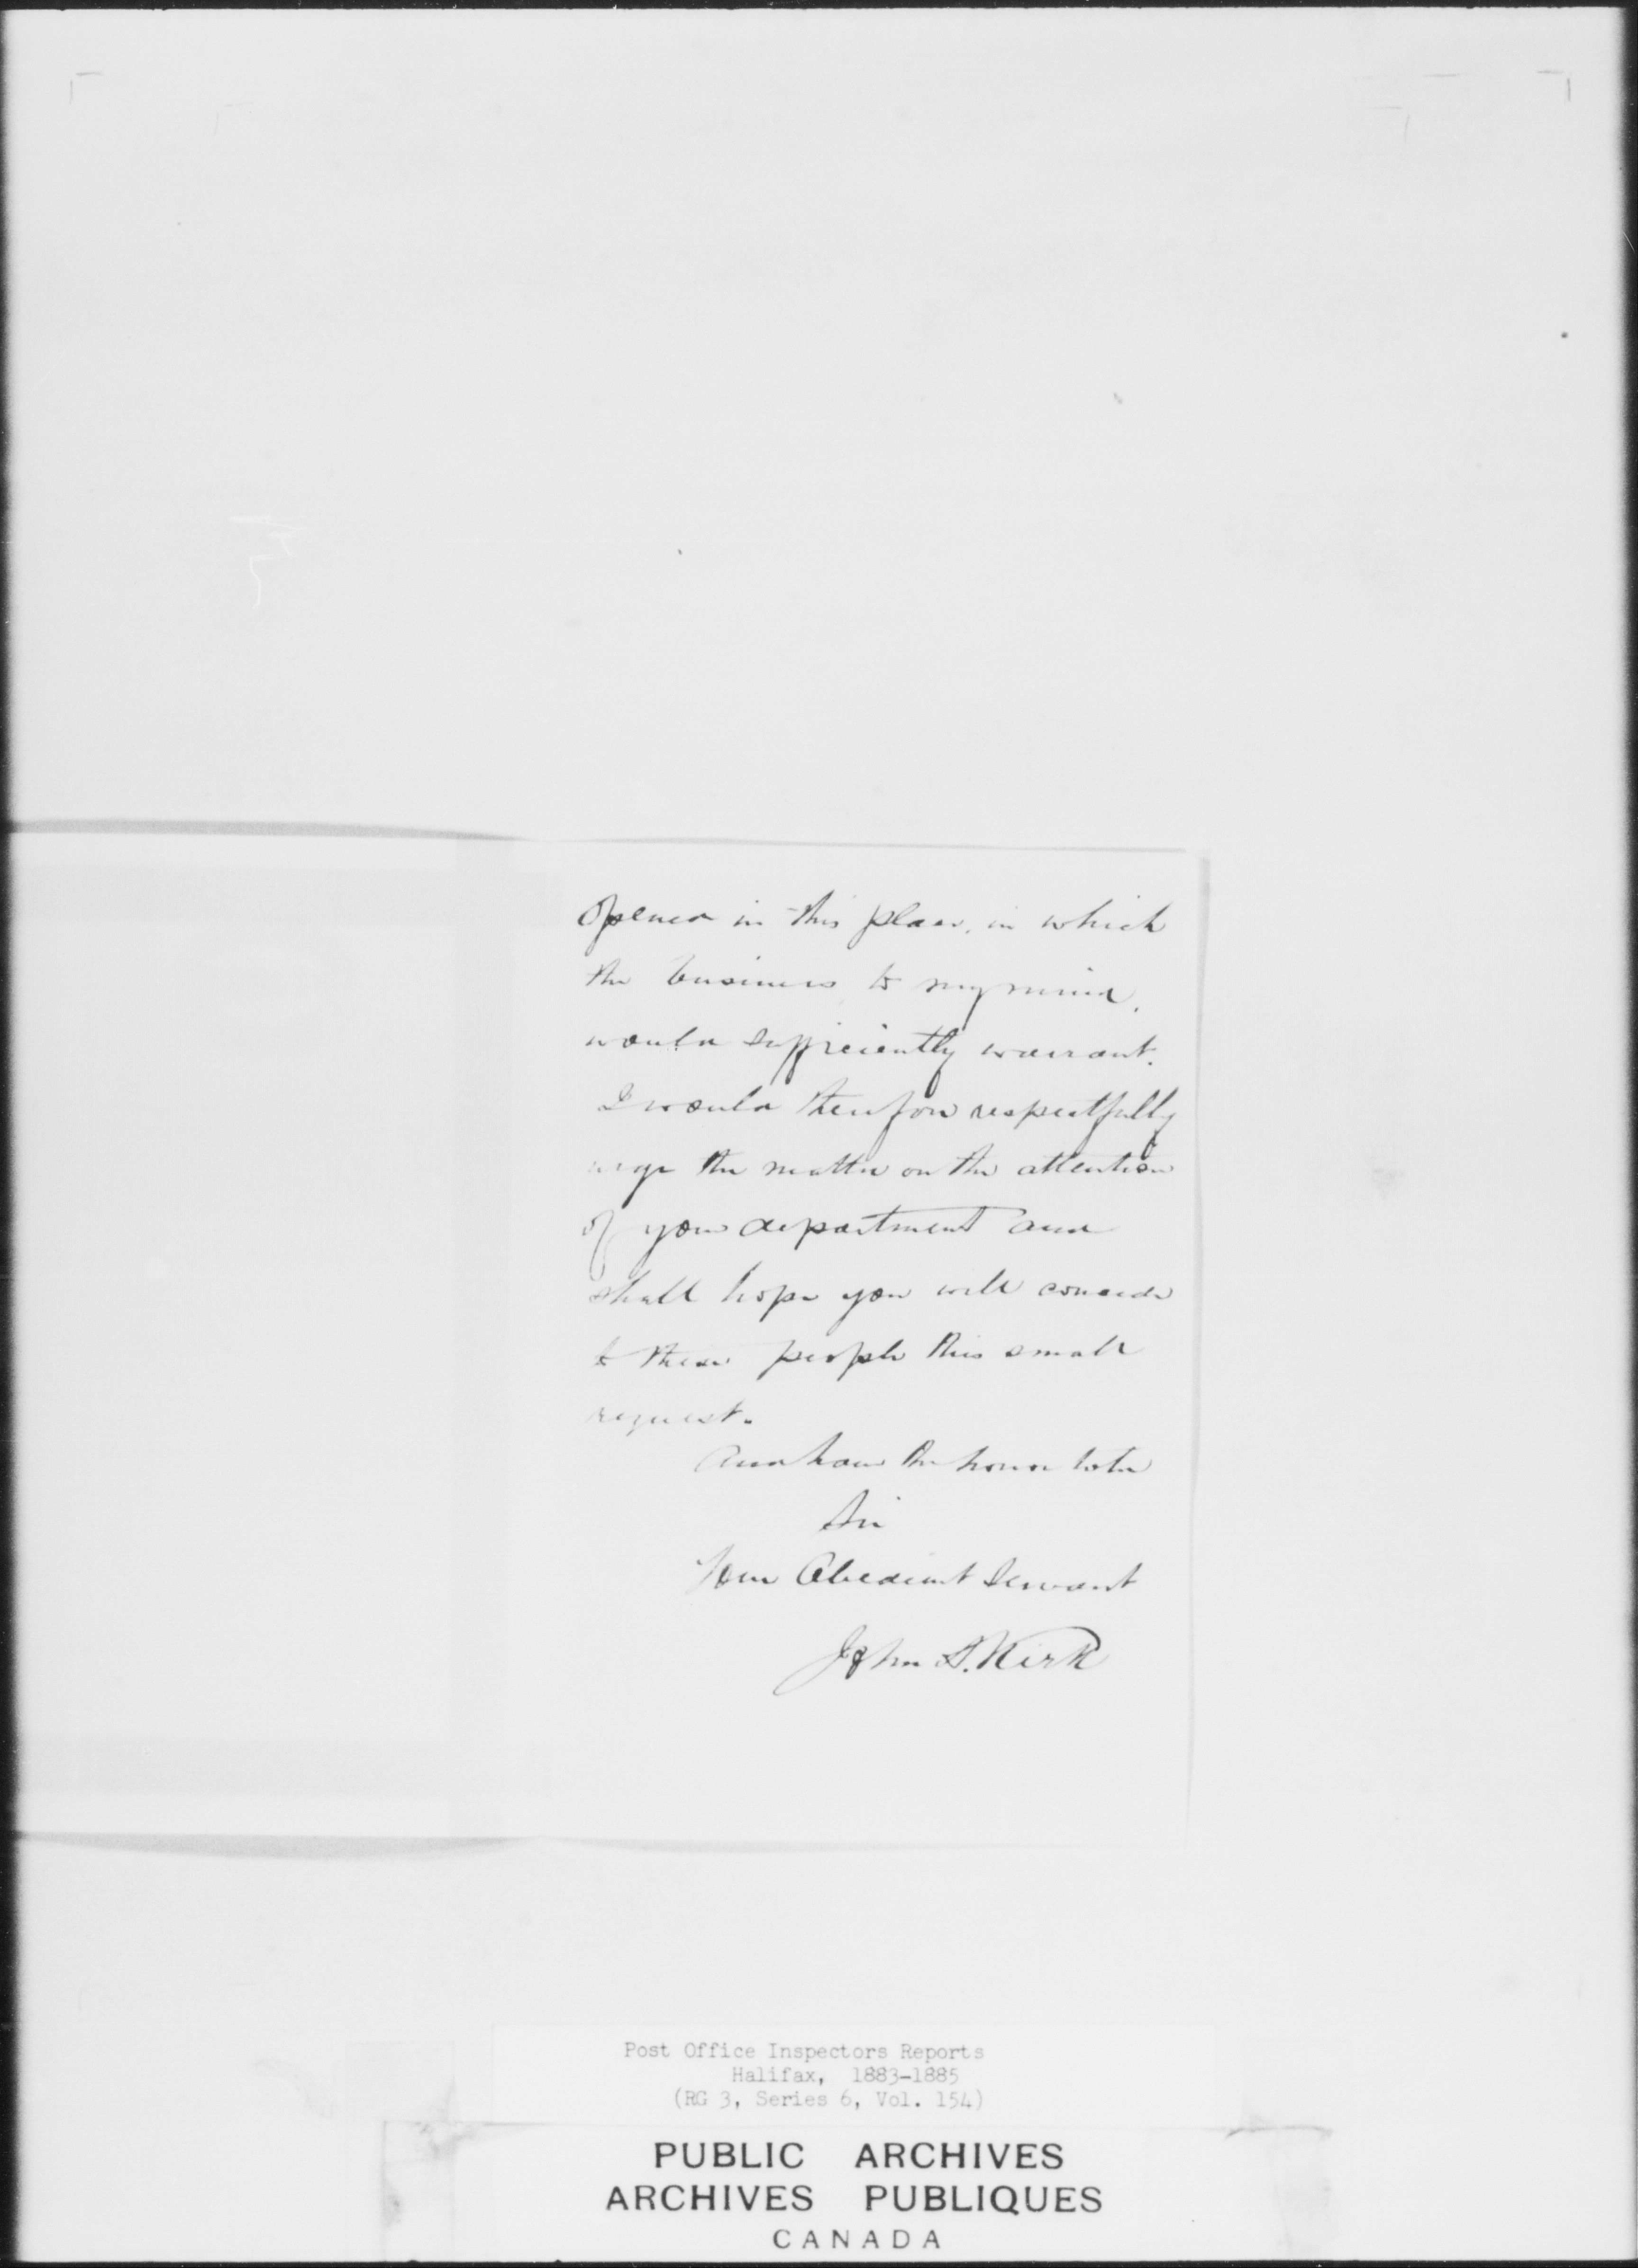 Opened in this place, in which
the business to my mind,
would sufficiently warrant.
I would therefore respectfully
urge the matter on the attention
of your department and
shall hope you will concede
to these people this small
request.
And have the honor to be
Sir
Your Obedient Servant
John S. Kirk
Post Office Inspectors Reports
Halifax, 1883-1885
(RG 3, Series 6, Vol. 154)
PUBLIC ARCHIVES
ARCHIVES PUBLIQUES
CANADA